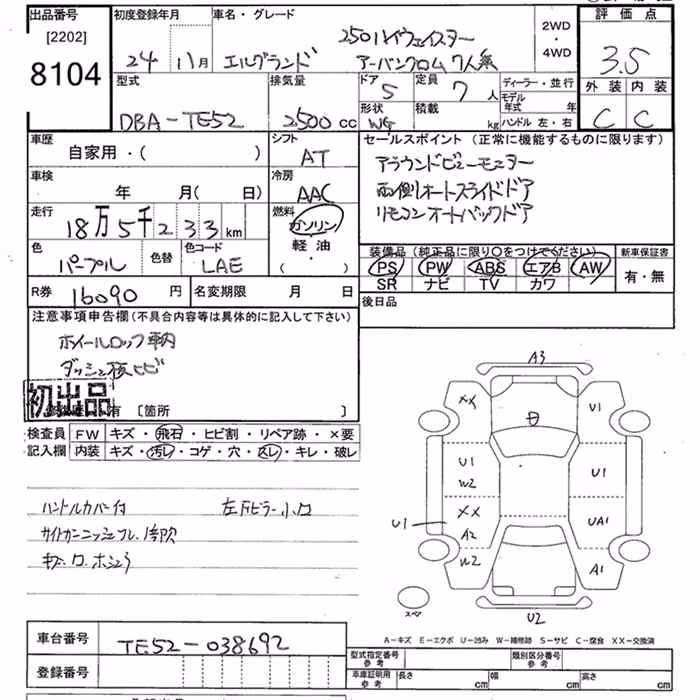 出品番号 初度登録年月 車名・グレード 2WD・4WD 評価点
[2202] 24年 11月 エルグランド 250ハイウェイスター
8104 アーバンクロム 7人乗 3.5
型式 排気量 ドア 5 定員 7人 ディーラー・並行 外装 内装
DBA-TE52 2500cc 形状 WG 積載 kg モデル年式 年 ハンドル 左・右 C C
車歴 自家用・( ) シフト AT セールスポイント (正常に機能するものに限ります)
アラウンドビューモニター
車検 年 月( 日) 冷房 AAC 両側オートスライドドア
リモコンオートバックドア
走行 18万5千233km 燃料 ガソリン 軽油・( )
色 パープル 色替 色コード LAE 装備品 (純正品に限り○をつけてください) 新車保証書
PS PW ABS エアB AW 有・無
R券 16090円 名変期限 月 日 SR ナビ TV カワ
後日品
注意事項申告欄(不具合内容等は具体的に記入して下さい)
ホイールロック車内
ダッシュ板ヒビ
初出品
有 [箇所 ]
検査員 FW キズ・飛石・ヒビ割・リペア跡・×要
記入欄 内装 キズ・汚レ・コゲ・穴・スレ・キレ・破レ
ハンドルカバー付
キズ
A3
XX U1
U1 W2 U1
U1 XX A2 UA1
W2 A1
スペア U2
A-キズ E-エクボ U-凹み W-補修跡 S-サビ C-腐食 XX-交換済
車台番号 TE52-038692
型式指定番号 参考 類別区分番号 参考
登録番号 車庫証明用 参考 長さ cm 幅 cm 高さ cm